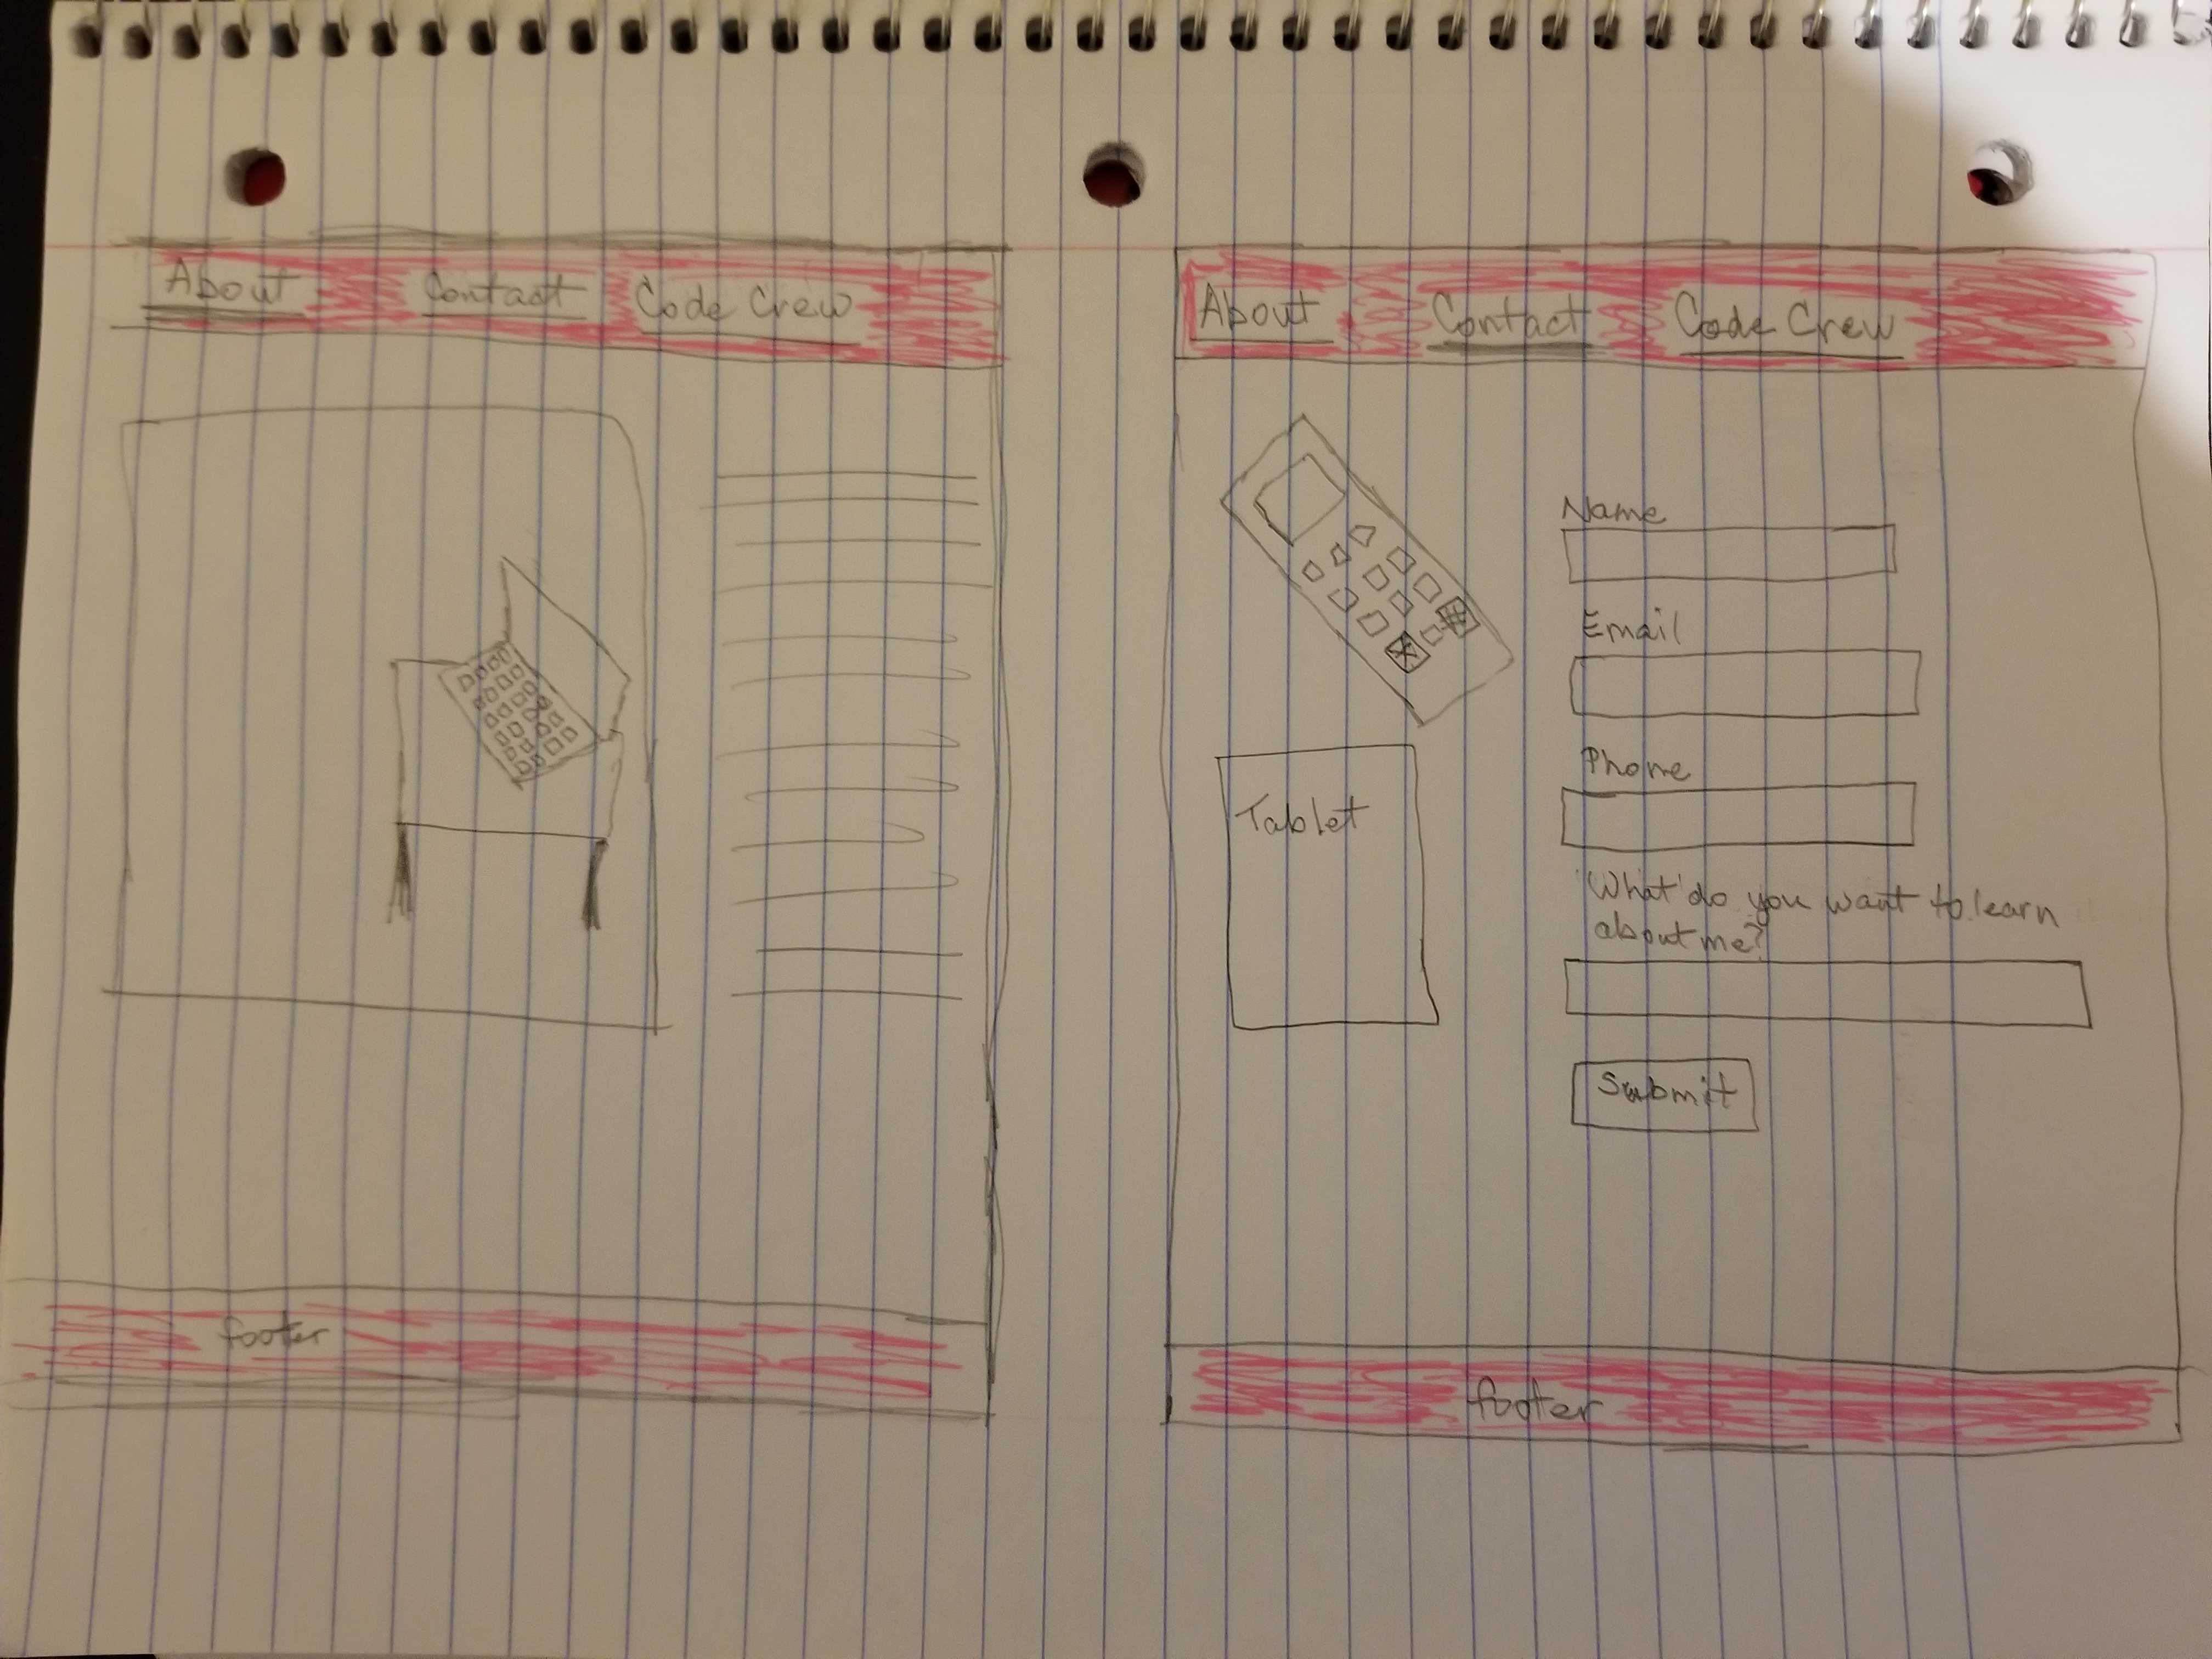 About Contact Code Crew
footer
About Contact Code Crew
Name
Email
Phone
Tablet
What do you want to learn
about me?
Submit
footer